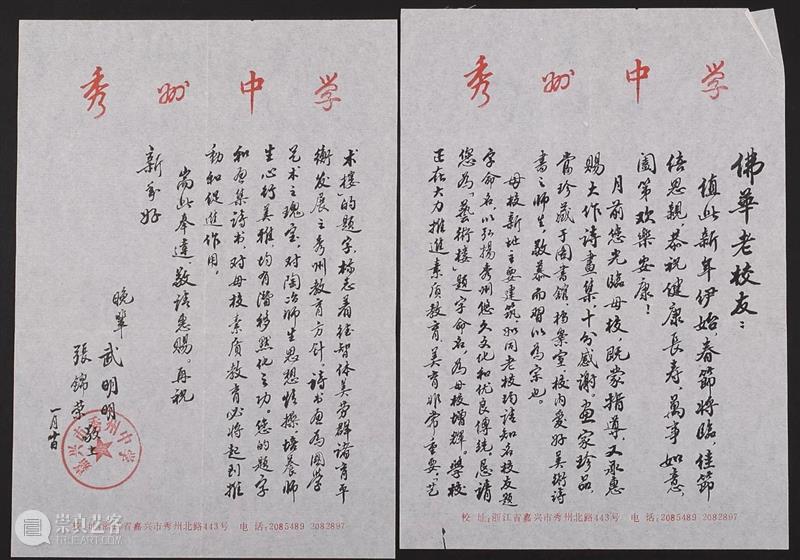 秀州中学
佛華老校友：
值此新年伊始，春節將臨，佳節
倍思親，恭祝健康長寿，萬事如意，
闔第欢樂安康！
月前您光临母校，既蒙指導，又承惠
赐大作诗畫集十分感谢。画家珍品，
當珍藏于图書館档案室，校内爱好美術诗
書之师生，敬慕而習以為宗也。
母校新址主要建筑如同老校均请知名校友題
字命名，以弘揚秀州悠久文化和优良傳统，恳请
您為「藝術楼」题字命名，為母校增輝。学校
正在大力推進素质教育，美育非常重要，"艺
校 址:浙江省嘉兴市秀州北路443号 电 话:2085489 2082897
秀州中学
术楼"的题字，标志着德智体美劳群诸育平
衡发展之秀州教育方针，诗书画為國学
艺术之瑰宝，对陶冶师生思想情操，培養师
生心行美雅，均有潜移默化之功。您的题字
和画集诗书，对母校素质教育必将起到推
動和促進作用。
耑此奉達，敬请惠赐。再祝
新年好
晚輩 武明明
張錦荣 敬上
一月十日
嘉兴市秀州中学
校 址:浙江省嘉兴市秀州北路443号 电 话:2085489 2082897
崇真艺客